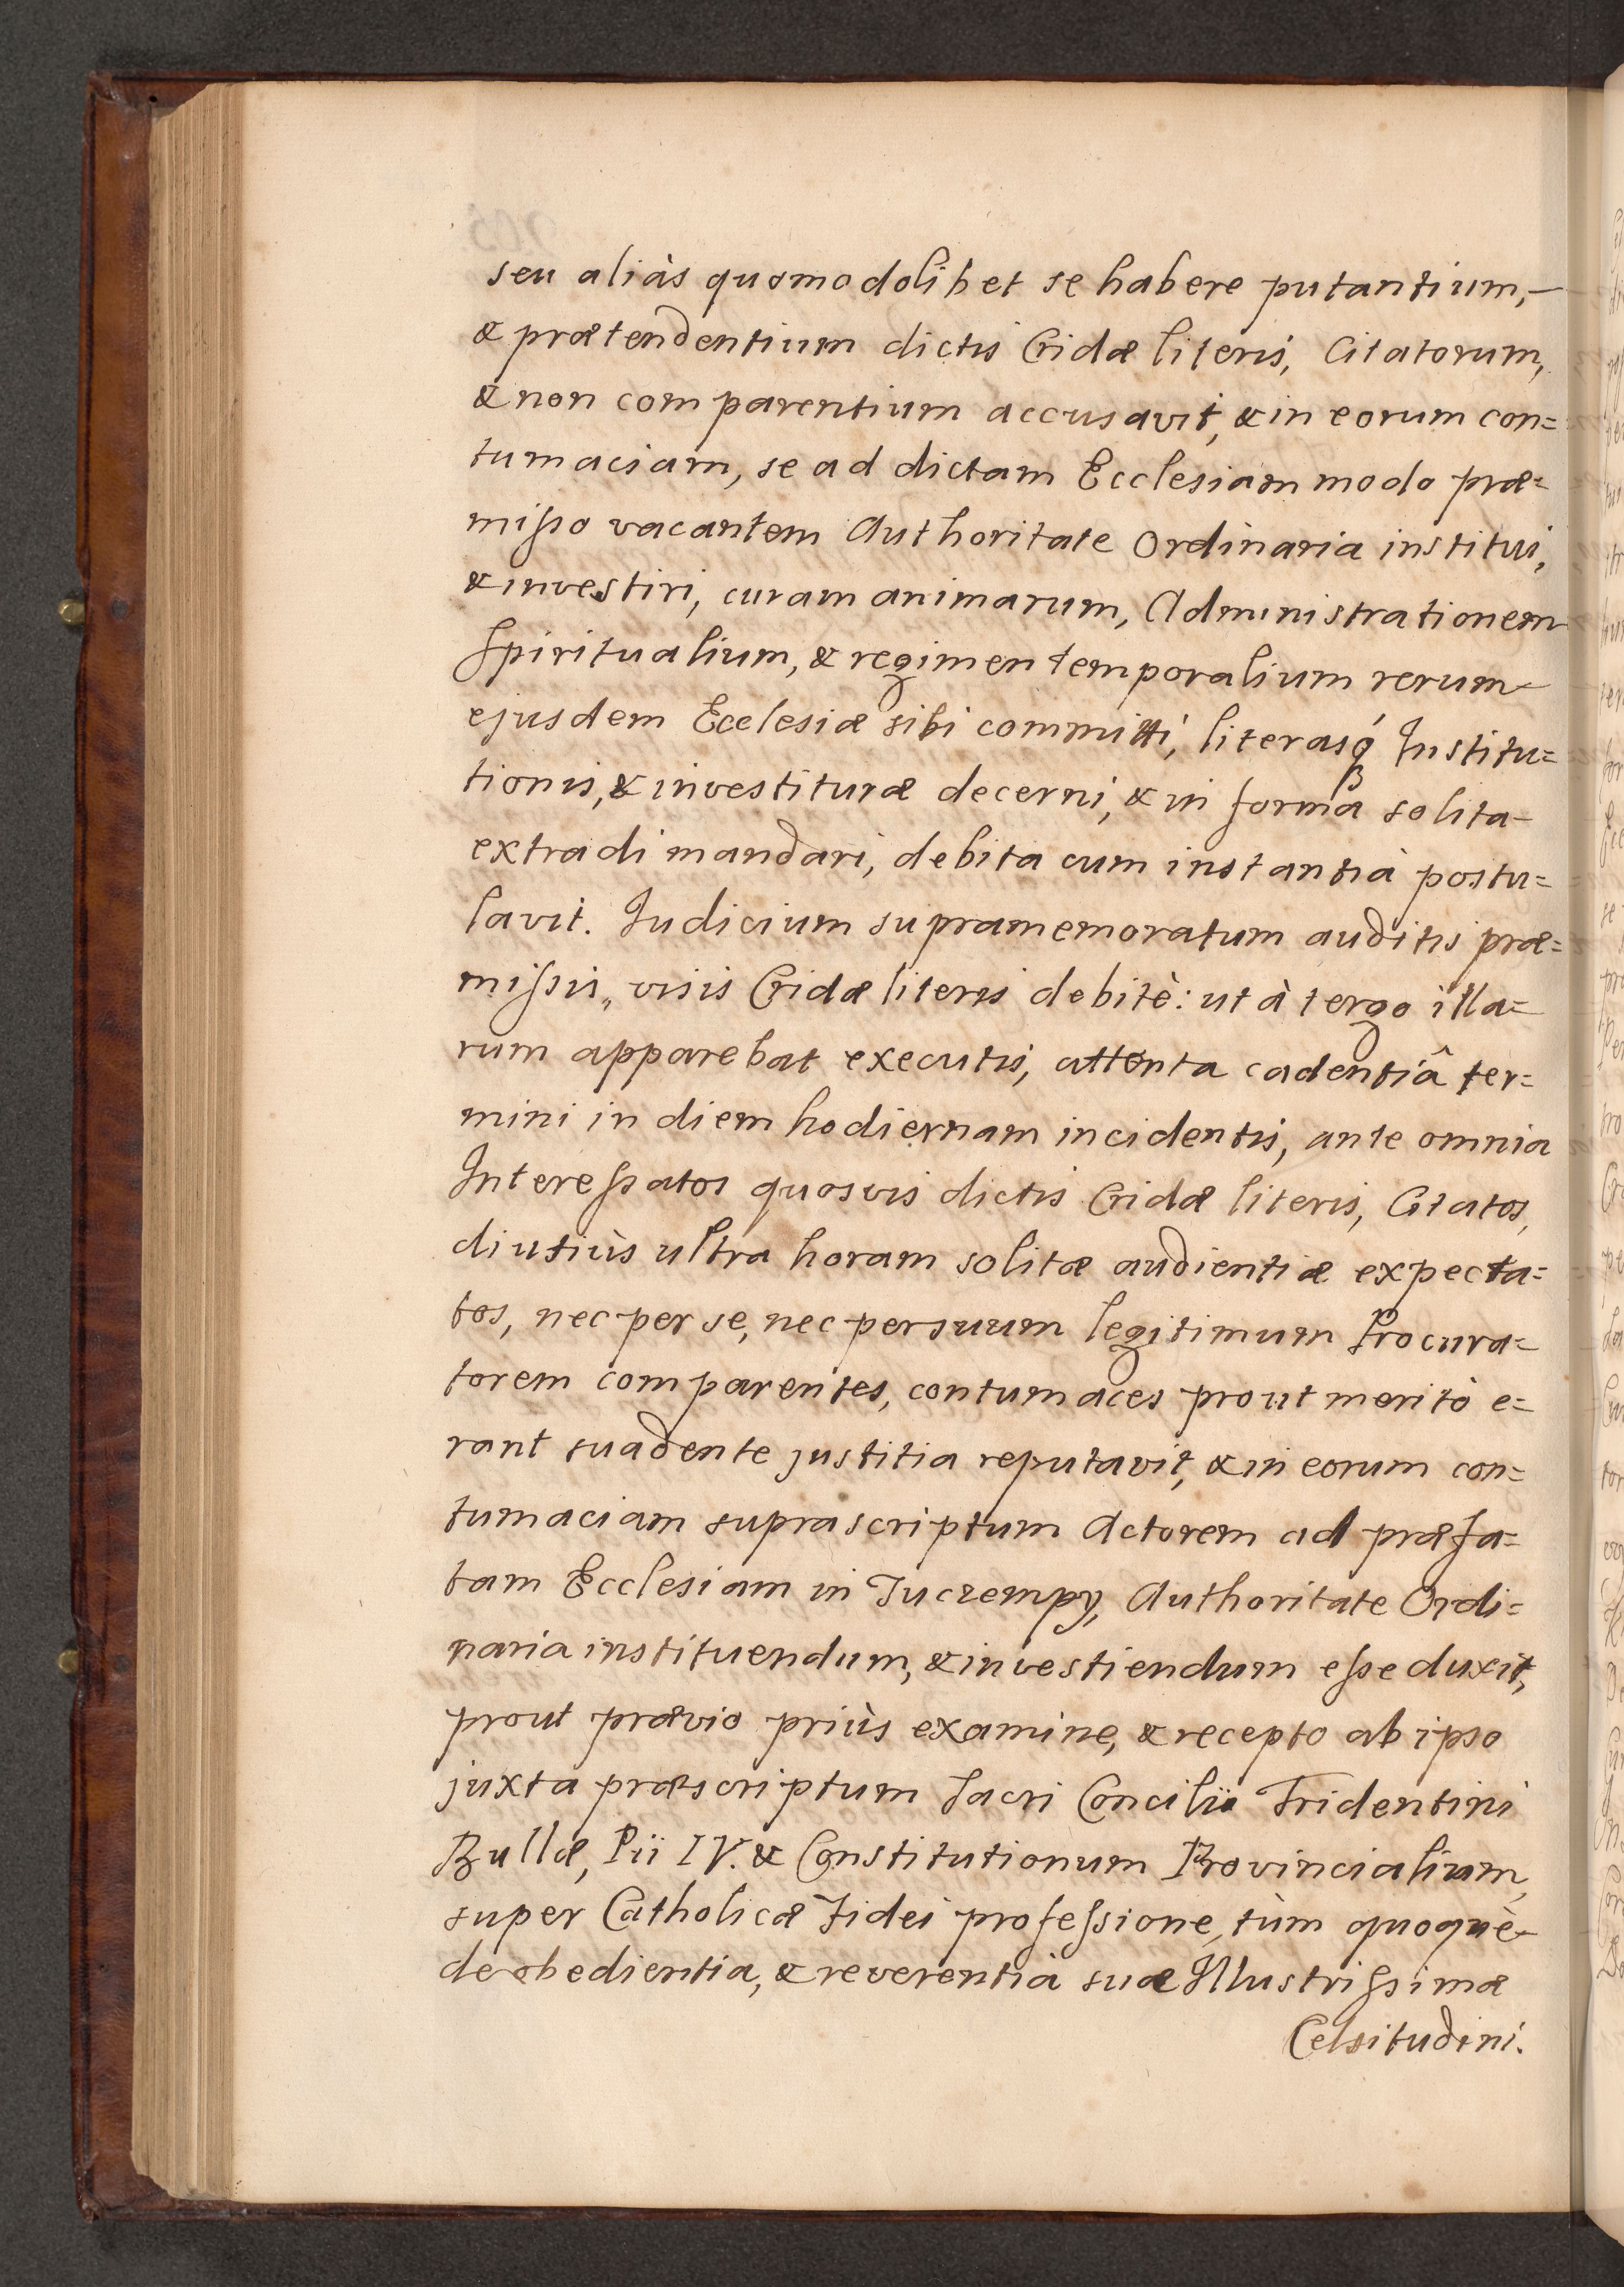 seu aliàs quomodolibet se habere putantium,
& prætendentium dictis Cridæ literis, Citatorum,
& non comparentium accusavit, & in eorum con=
tumaciam, se ad dictam Ecclesiam modo præ=
misso vacantem Authoritate Ordinaria institui,
& investiri, curam animarum, Administrationem
Spiritualium, & regimen temporalium rerum
ejusdem Ecclesiæ sibi committi, literasq́ Institu=
tionis, & investituræ decerni, & in forma solita
extradi mandari, debita cum instantia postu=
lavit. Judicium supramemoratum auditis præ=
missis, visis Cridæ literis debitè: ut à tergo illa=
rum apparebat executis, attenta cadentiâ ter=
mini in diem hodiernam incidentis, ante omnia
Interessatos quosvis dictis Cridæ literis, Citatos,
diutiùs ultra horam solitæ audientiæ expecta=
tos, nec per se, nec per suum legitimum Procura=
torem comparentes, contumaces prout meritò e=
rant suadente justitia reputavit, & in eorum con=
tumaciam suprascriptum Actorem ad præfa=
tam Ecclesiam in Tuczempy, Authoritate Ordi=
naria instituendum, & investiendum esse duxit,
prout prævio priùs examine, & recepto ab ipso
juxta præscriptum Sacri Concilii Tridentini
Bullæ, Pii IV. & Constitutionum Provincialium,
super Catholicæ Fidei professione, tùm quoquè
de obedientia, & reverentia suæ Illustrissimæ
Celsitudini.